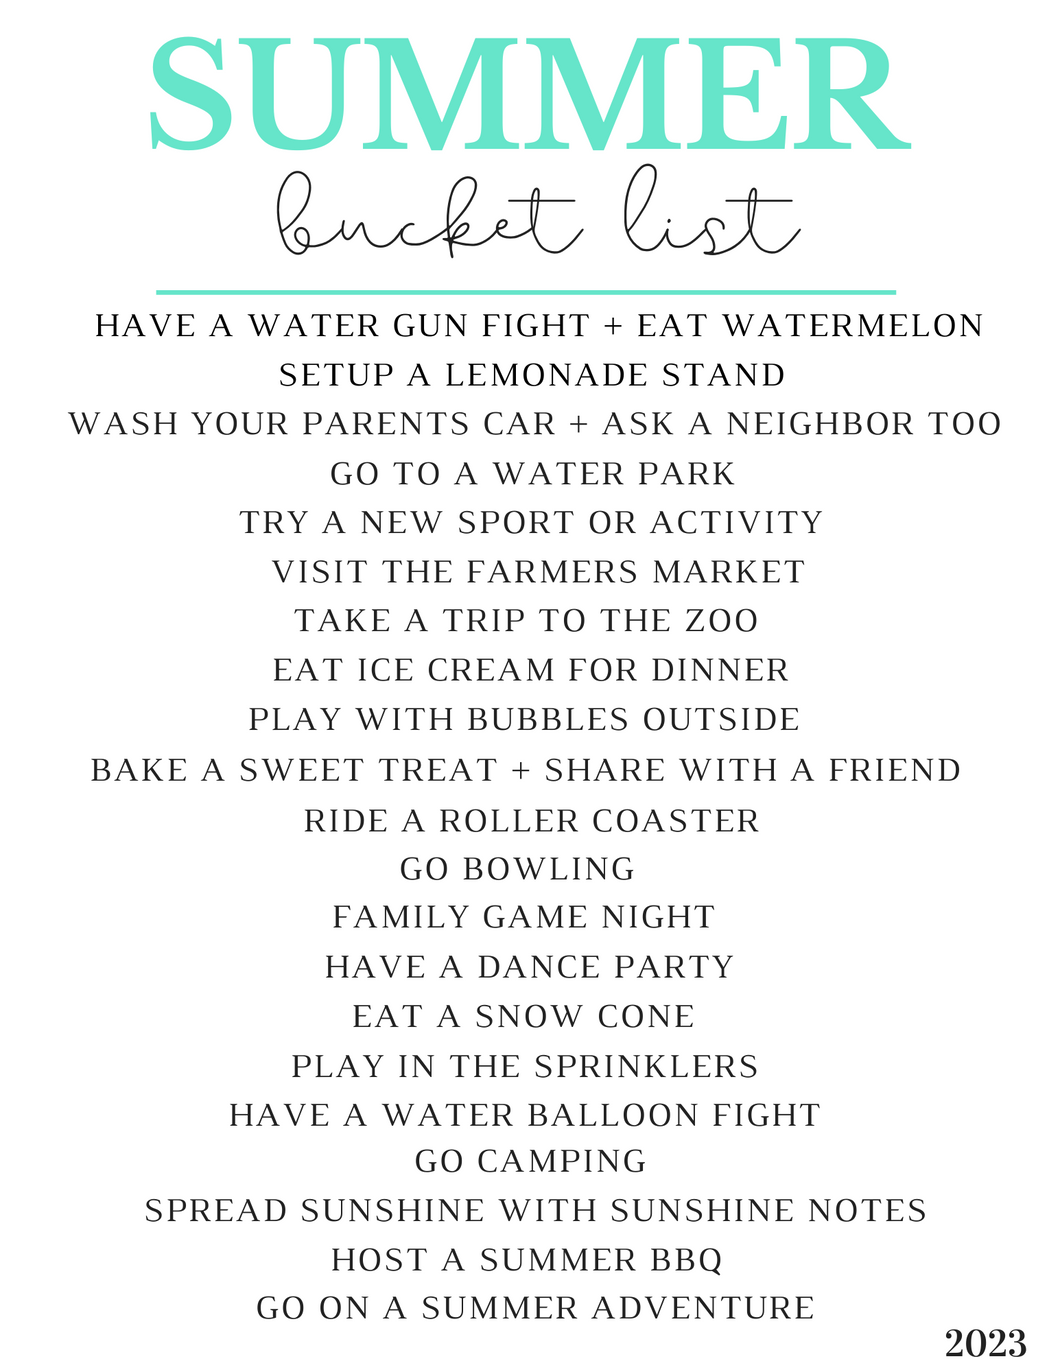 SUMMER
bucket list
HAVE A WATER GUN FIGHT + EAT WATERMELON
SETUP A LEMONADE STAND
WASH YOUR PARENTS CAR + ASK A NEIGHBOR TOO
GO TO A WATER PARK
TRY A NEW SPORT OR ACTIVITY
VISIT THE FARMERS MARKET
TAKE A TRIP TO THE ZOO
EAT ICE CREAM FOR DINNER
PLAY WITH BUBBLES OUTSIDE
BAKE A SWEET TREAT + SHARE WITH A FRIEND
RIDE A ROLLER COASTER
GO BOWLING
FAMILY GAME NIGHT
HAVE A DANCE PARTY
EAT A SNOW CONE
PLAY IN THE SPRINKLERS
HAVE A WATER BALLOON FIGHT
GO CAMPING
SPREAD SUNSHINE WITH SUNSHINE NOTES
HOST A SUMMER BBQ
GO ON A SUMMER ADVENTURE
2023